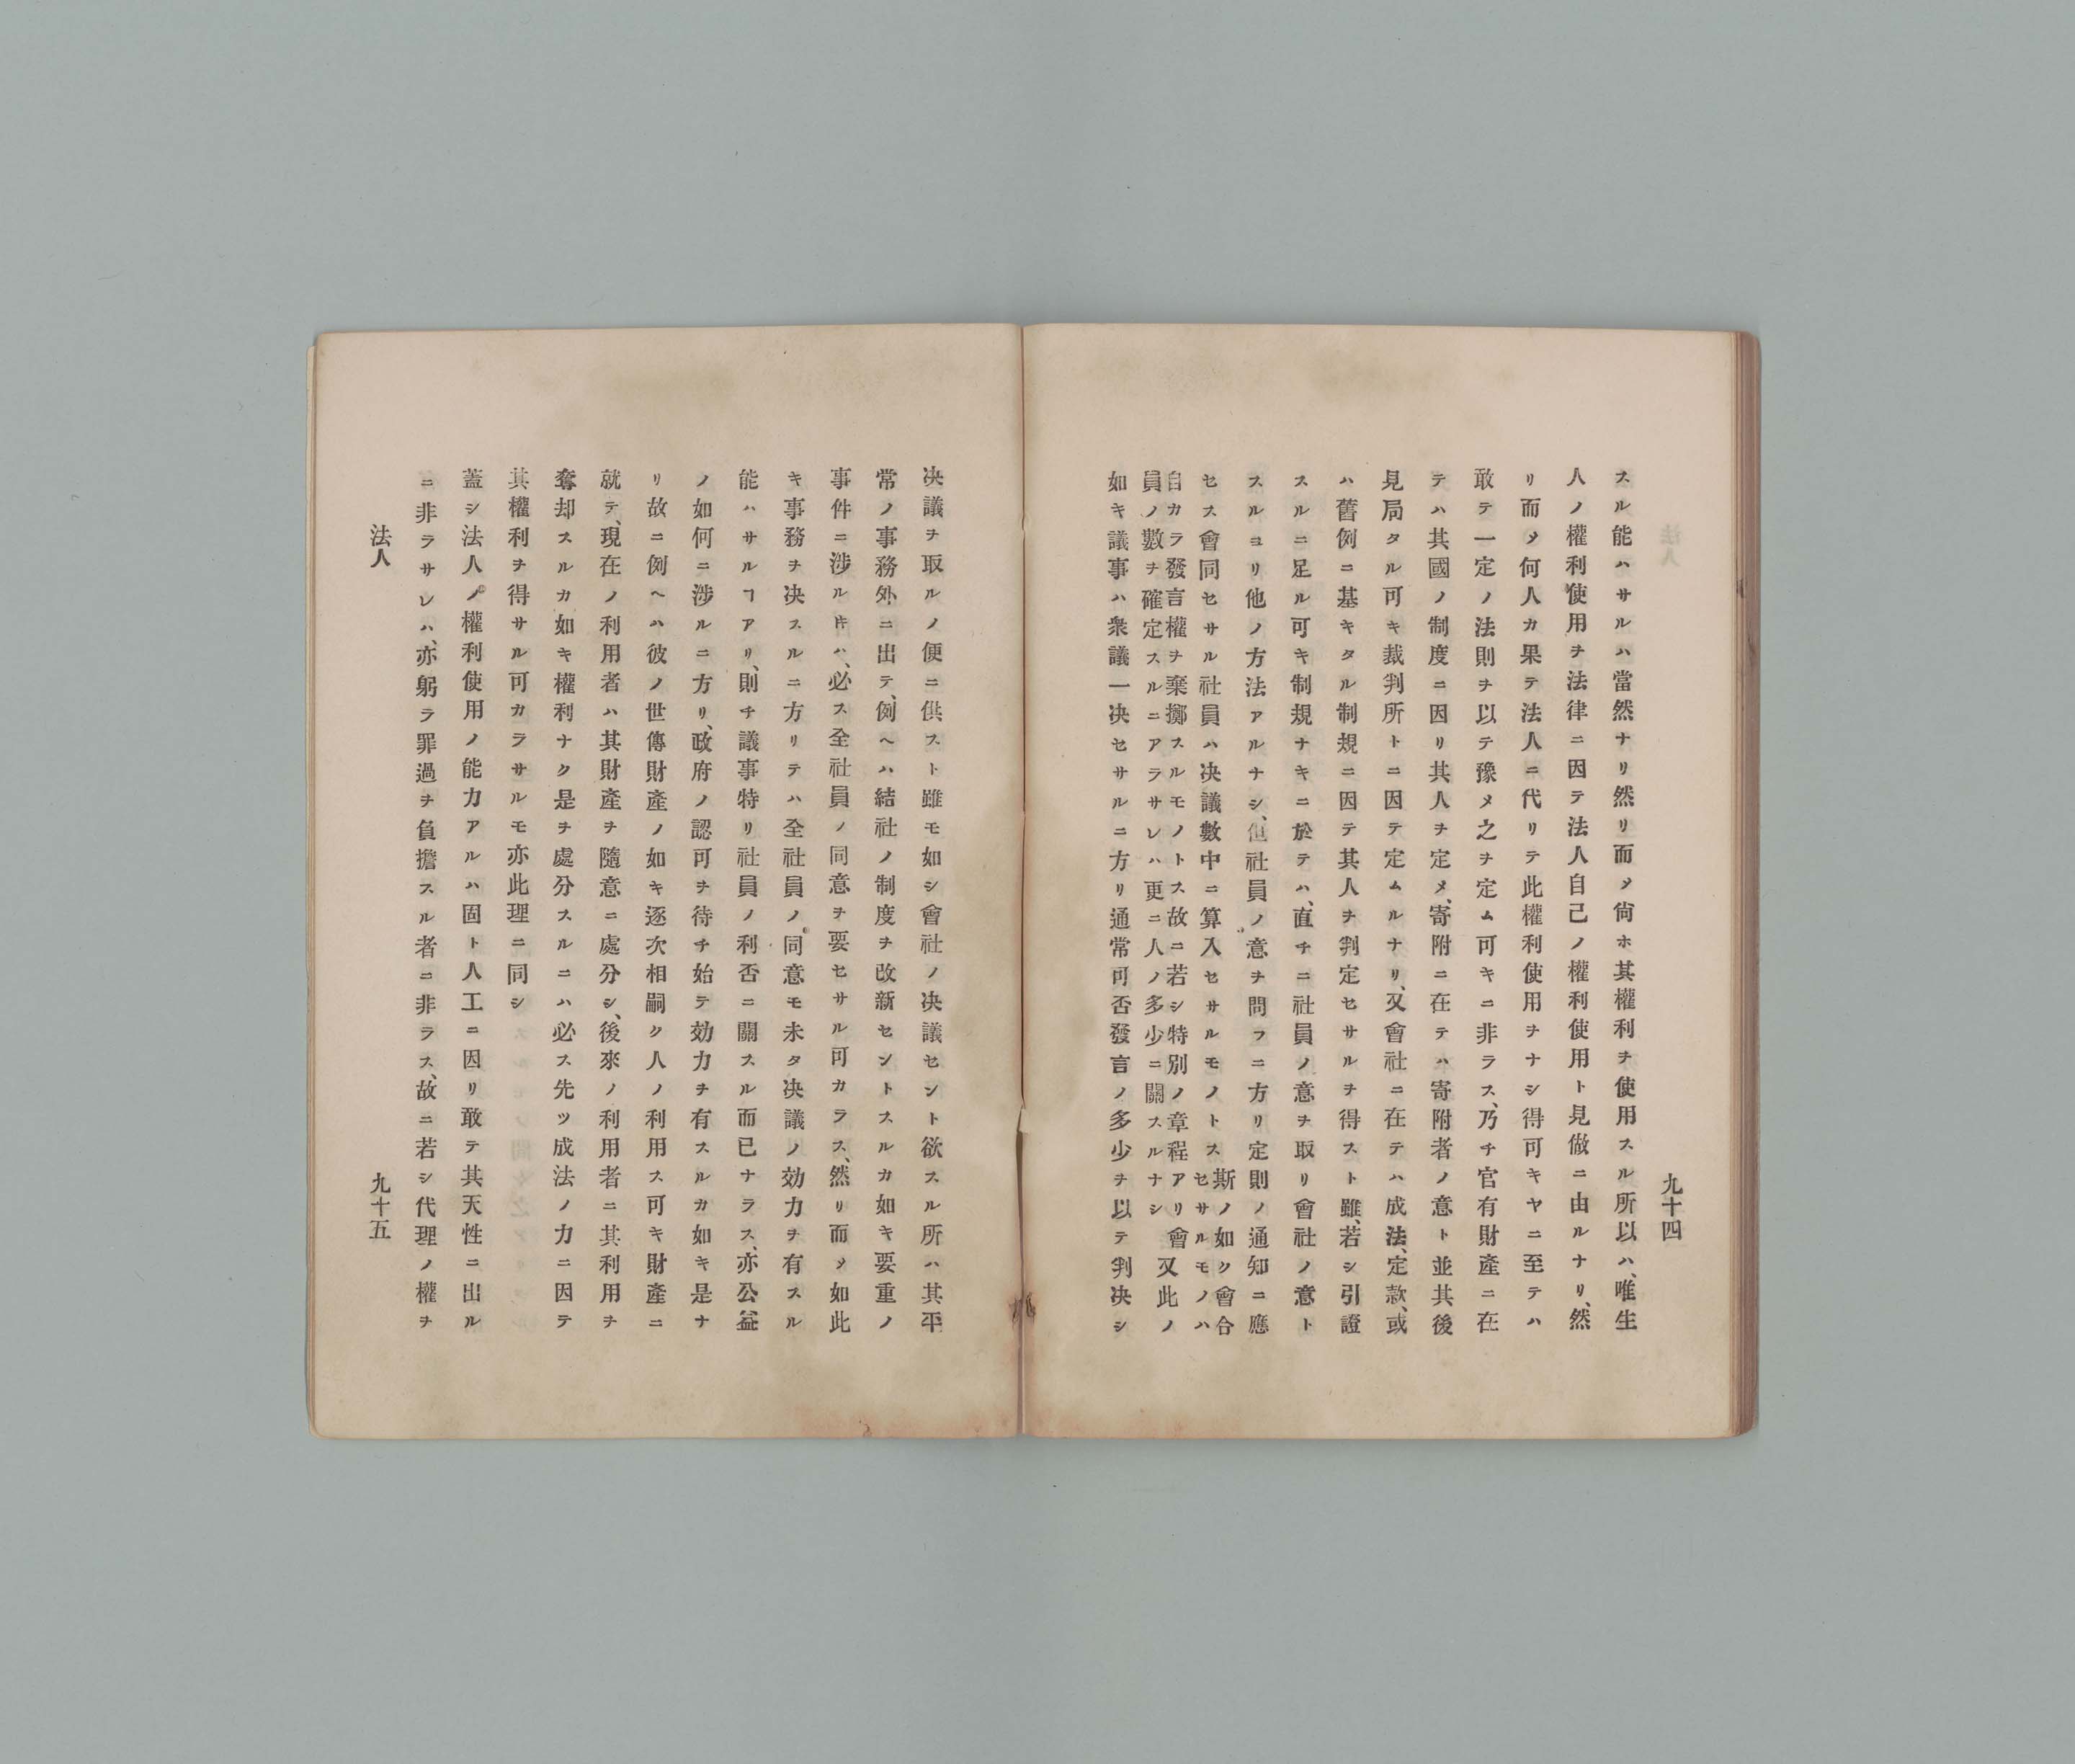 九十四
スル能ハサルハ當然ナリ然リ而〆尙ホ其權利ヲ使用スル所以ハ、唯生
人ノ權利使用ヲ法律ニ因テ法人自己ノ權利使用ト見做ニ由ルナリ、然
リ而〆何人カ果テ法人ニ代リテ此權利使用ヲナシ得可キヤニ至テハ
敢テ一定ノ法則ヲ以テ豫メ之ヲ定ム可キニ非ラス、乃チ官有財產ニ在
テハ其國ノ制度ニ因リ其人ヲ定メ、寄附ニ在テハ寄附者ノ意ト並其後
見局タル可キ裁判所トニ因テ定ムルナリ、又會社ニ在テハ成法、定款、或
ハ舊例ニ基キタル制規ニ因テ其人ヲ判定セサルヲ得スト雖、若シ引證
スルニ足ル可キ制規ナキニ於テハ、直チニ社員ノ意ヲ取リ會社ノ意ト
スルヨリ他ノ方法アルナシ、但社員ノ意ヲ問フニ方リ定則ノ通知ニ應
セス會同セサル社員ハ決議數中ニ算入セサルモノトス
斯ノ如ク會合
セサルモノハ
自カラ發言權ヲ棄擲スルモノトス故ニ若シ特別ノ章程アリ會
員ノ數ヲ確定スルニアラサレハ更ニ人ノ多少ニ關スルナシ
又此ノ
如キ議事ハ衆議一决セサルニ方リ通常可否發言ノ多少ヲ以テ判决シ
决議ヲ取ルノ便ニ供スト雖モ如シ會社ノ决議セント欲スル所ハ其平
常ノ事務外ニ出テ、例ヘハ結社ノ制度ヲ改新セントスルカ如キ要重ノ
事件ニ涉ルヰハ、必ス全社員ノ同意ヲ要セサル可カラス、然リ而〆如此
キ事務ヲ决スルニ方リテハ全社員ノ同意モ未タ决議ノ効力ヲ有スル
能ハサルヿアリ、則チ議事特リ社員ノ利否ニ關スル而已ナラス、亦公益
ノ如何ニ涉ルニ方リ、政府ノ認可ヲ待チ始テ効力ヲ有スルカ如キ是ナ
リ故ニ例ヘハ彼ノ世傳財產ノ如キ逐次相嗣ク人ノ利用ス可キ財產ニ
就テ、現在ノ利用者ハ其財產ヲ隨意ニ處分シ、後來ノ利用者ニ其利用ヲ
奪却スルカ如キ權利ナク是ヲ處分スルニハ必ス先ツ成法ノ力ニ因テ
其權利ヲ得サル可カラサルモ亦此理ニ同シ
蓋シ法人ノ權利使用ノ能力アルハ固ト人工ニ因リ敢テ其天性ニ出ル
ニ非ラサレハ、亦躬ラ罪過ヲ負擔スル者ニ非ラス、故ニ若シ代理ノ權ヲ
法人
九十五